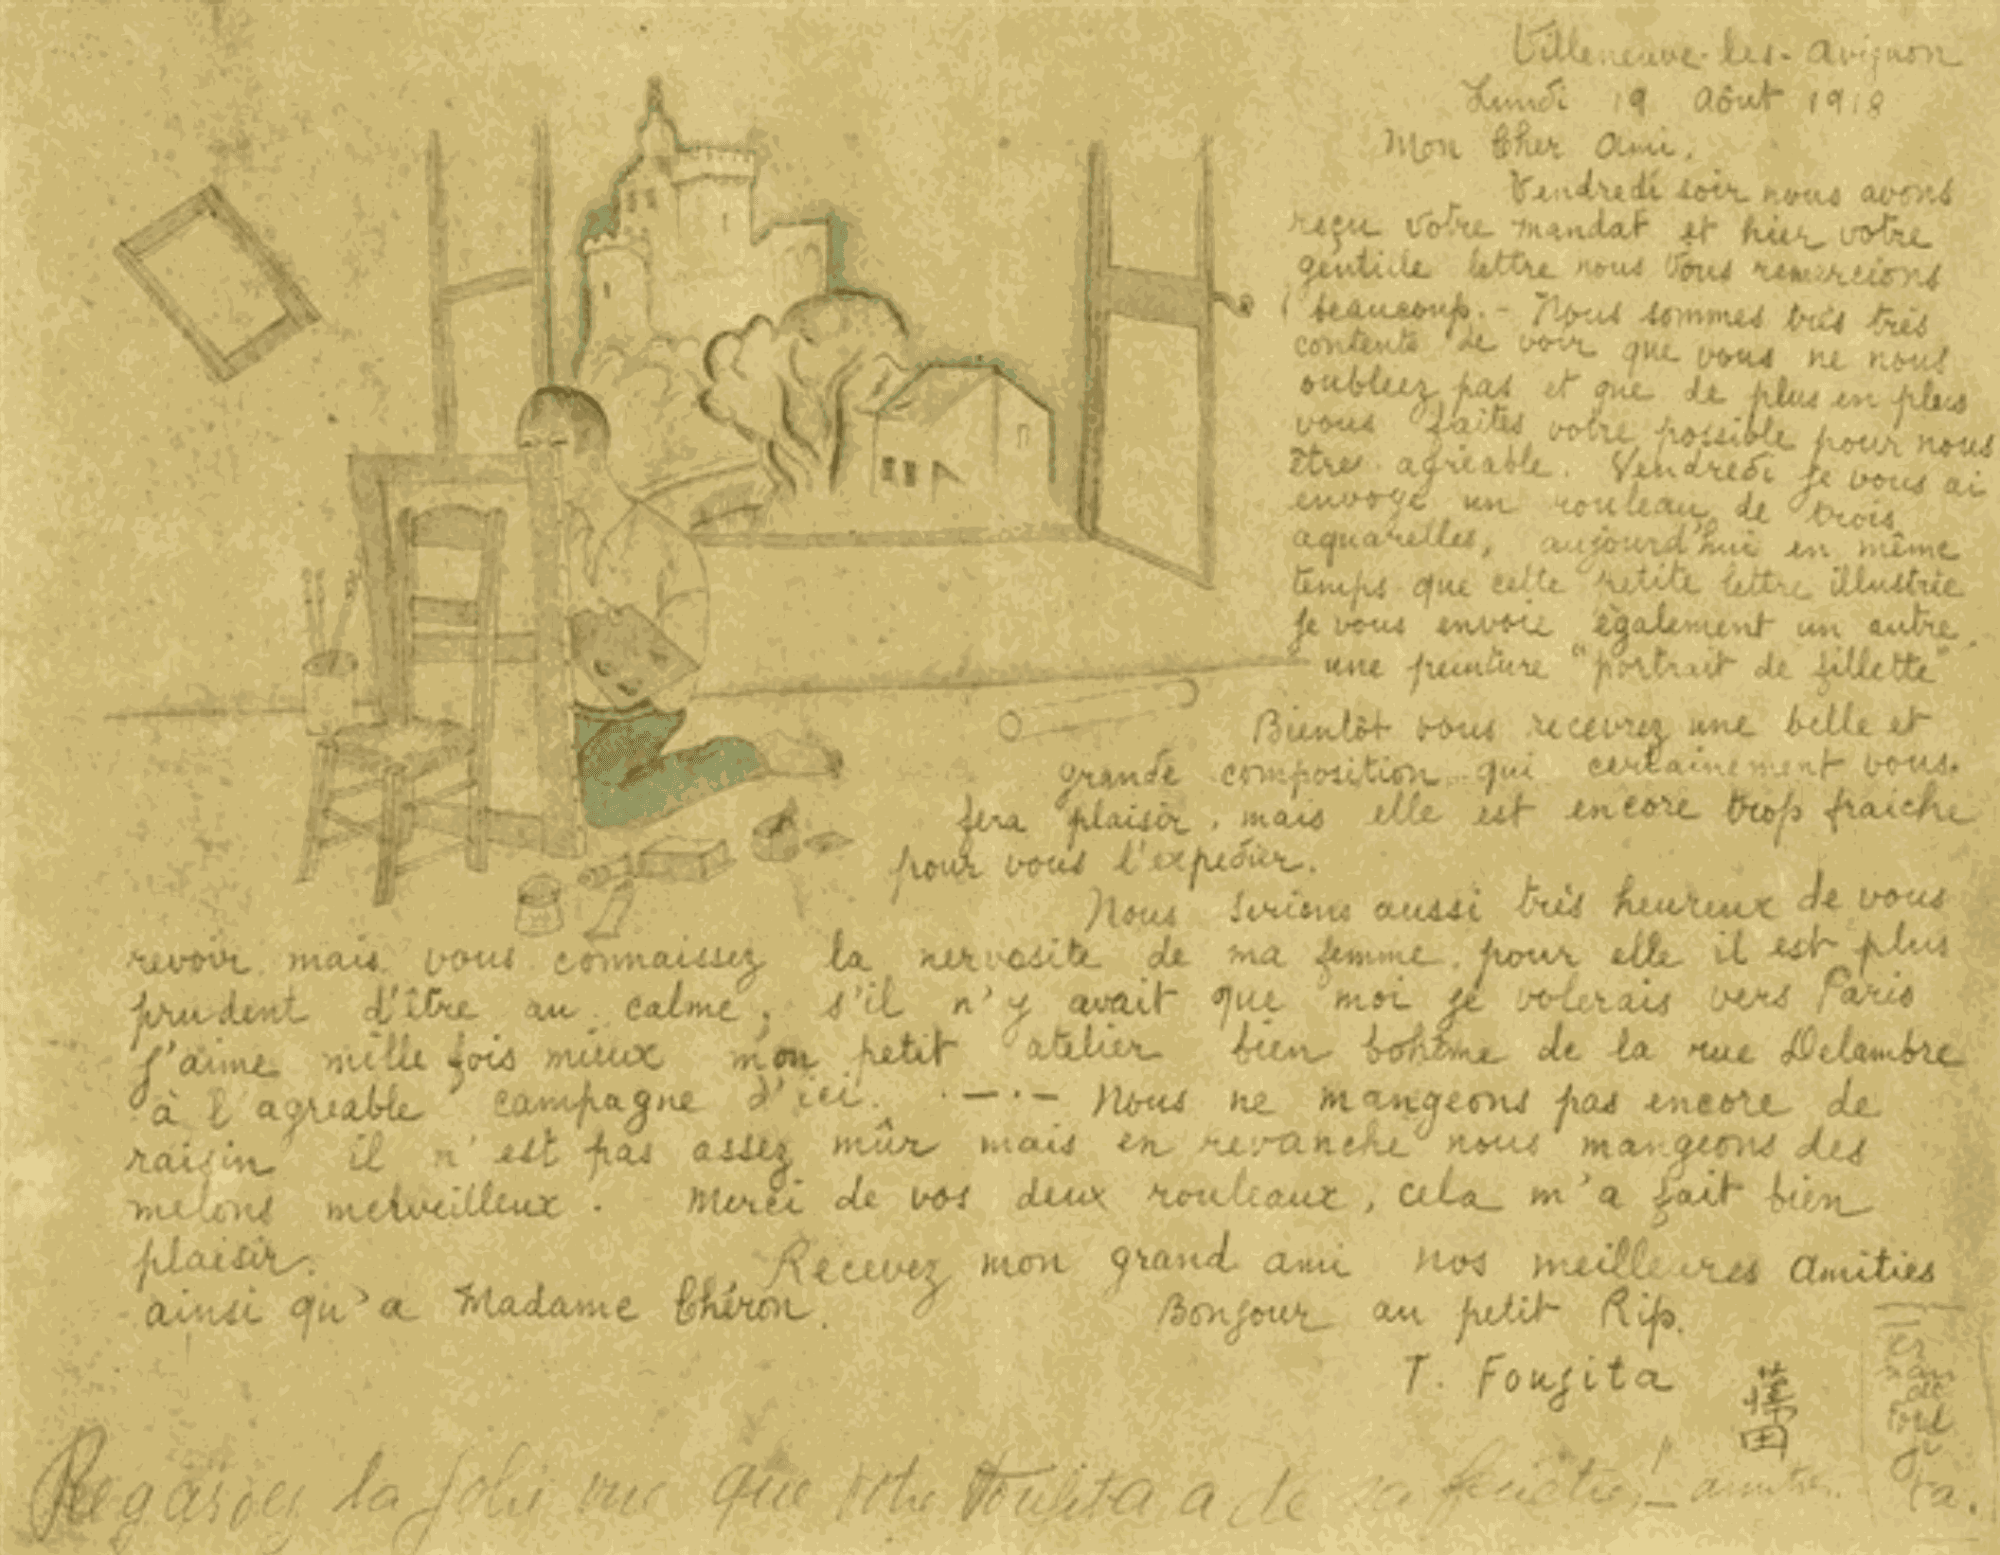 Villeneuve-les-Avignon
Lundi 19 Aôut 1918
Mon Cher Ami,
Vendredi soir nous avons
reçu votre mandat et hier votre
gentille lettre nous vous remercions
beaucoup. - Nous sommes très très
contents de voir que vous ne nous
oubliez pas et que de plus en plus
vous faites votre possible pour nous
être agréable. Vendredi je vous ai
envoyé un rouleau de trois
aquarelles, aujourd'hui en même
temps que cette petite lettre illustrée
je vous envoie également un autre
une peinture "portrait de fillette"
Bientôt vous recevrez une belle et
grande composition qui certainement vous
fera plaisir, mais elle est encore trop fraiche
pour vous l'expedier.
Nous serions aussi très heureux de vous
revoir mais vous connaissez la nervosite de ma femme, pour elle il est plus
prudent d'être au calme, s'il n'y avait que moi je volerais vers Paris
j'aime mille fois mieux mon petit atelier bien bohême de la rue Delambre
à l'agreable campagne d'ici. - . - Nous ne mangeons pas encore de
raisin il n'est pas assez mûr mais en revanche nous mangeons des
melons merveilleux. Merci de vos deux rouleaux, cela m'a fait bien
plaisir.
Recevez mon grand ami nos meilleures amities
ainsi qu'a Madame Chéron.
Bonjour au petit Rip.
T. Foujita
藤田
Regardez la jolie vue que votre Foujita a de sa fenêtre!